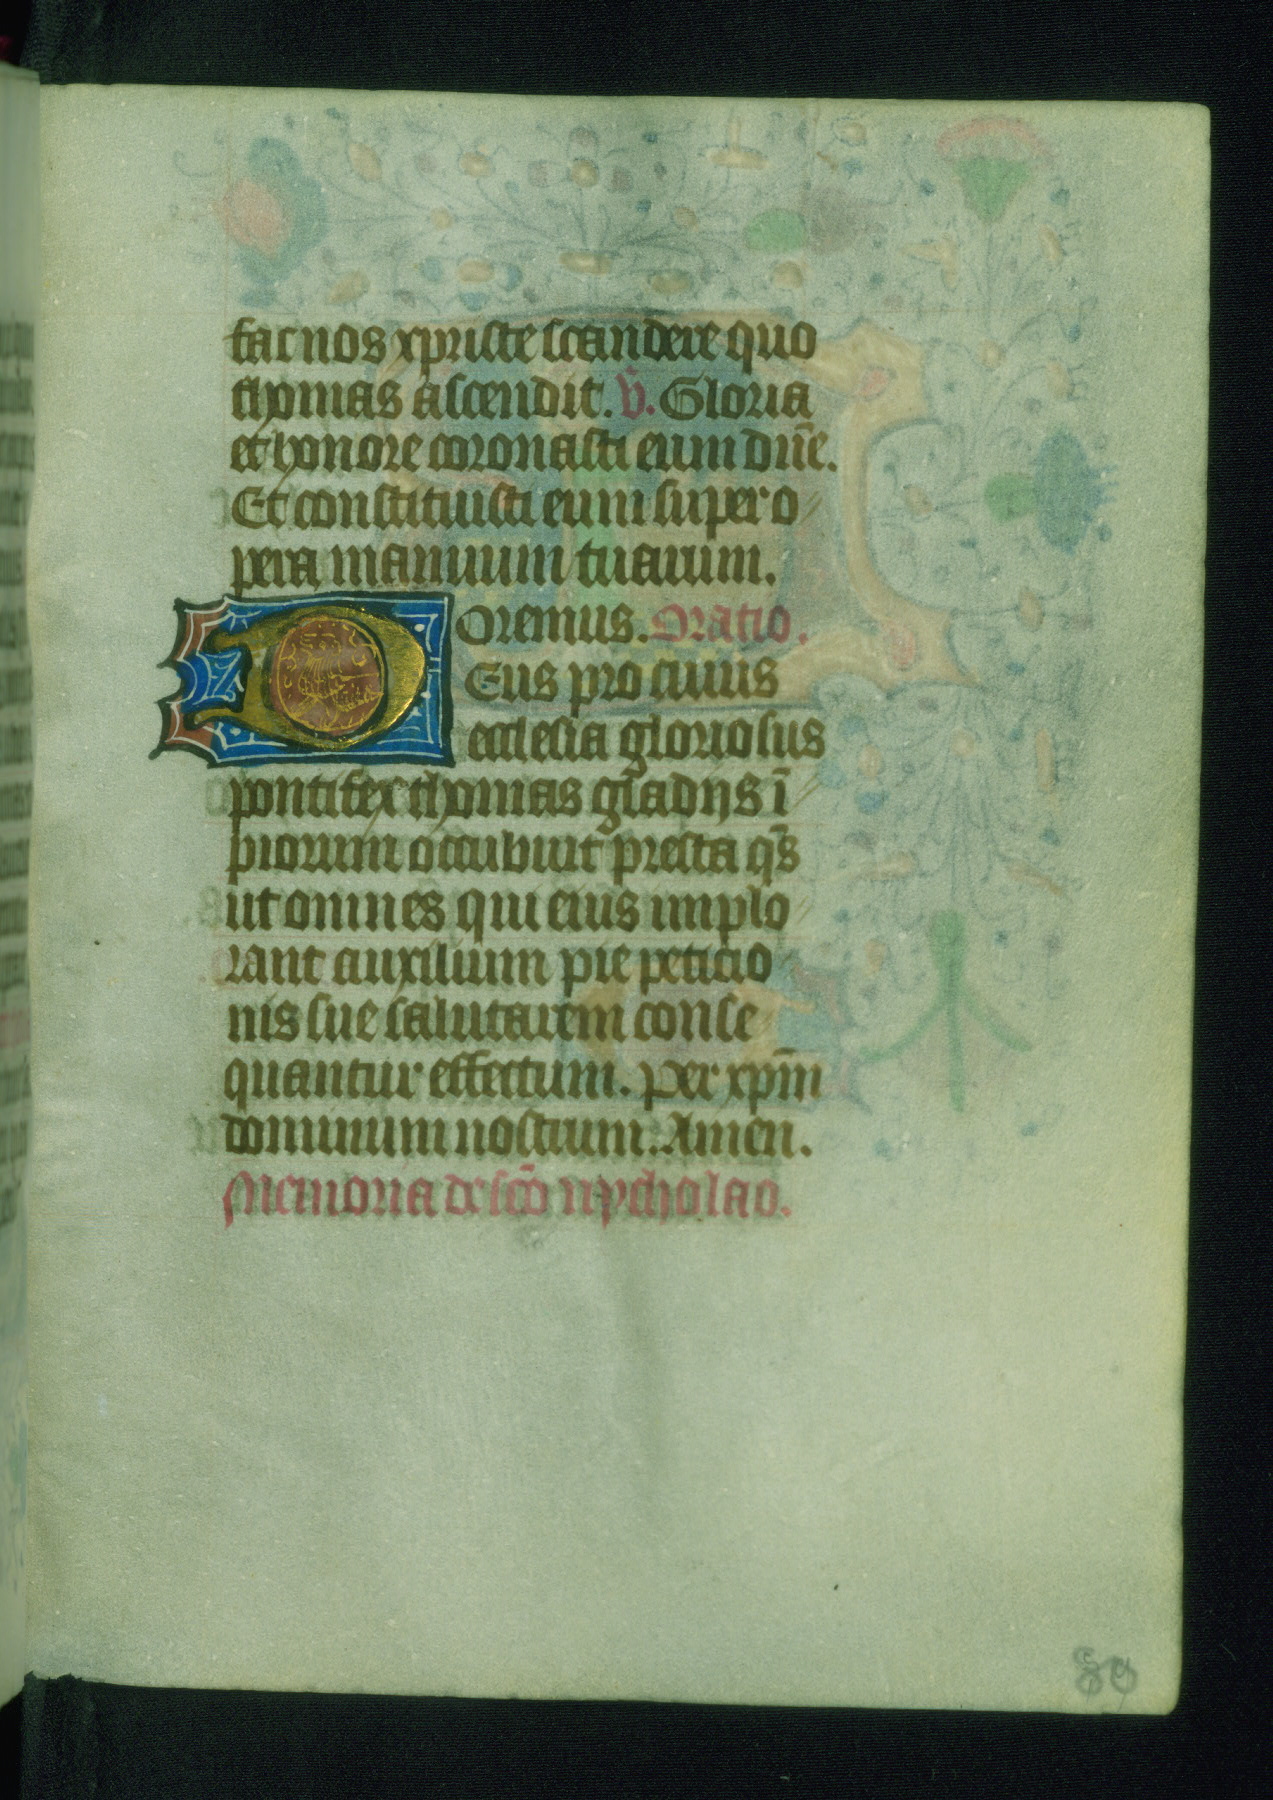 fac nos xpriste scandere quo
thomas ascendit. V̄. Gloria
et honore coronasti eum dn̄e.
Et constituisti eum super o
pera manuum tuarum.
Oremus. Oratio.
DEus pro cuius
ecclesia gloriosus
pontifex thomas gladijs ī
piorum occubuit presta qs̄
ut omnes qui eius implo
rant auxilium pie peticio
nis sue salutarem conse
quantur effectum. per xpm̄
dominum nostrum. Amen.
Memoria de scō nycholao.